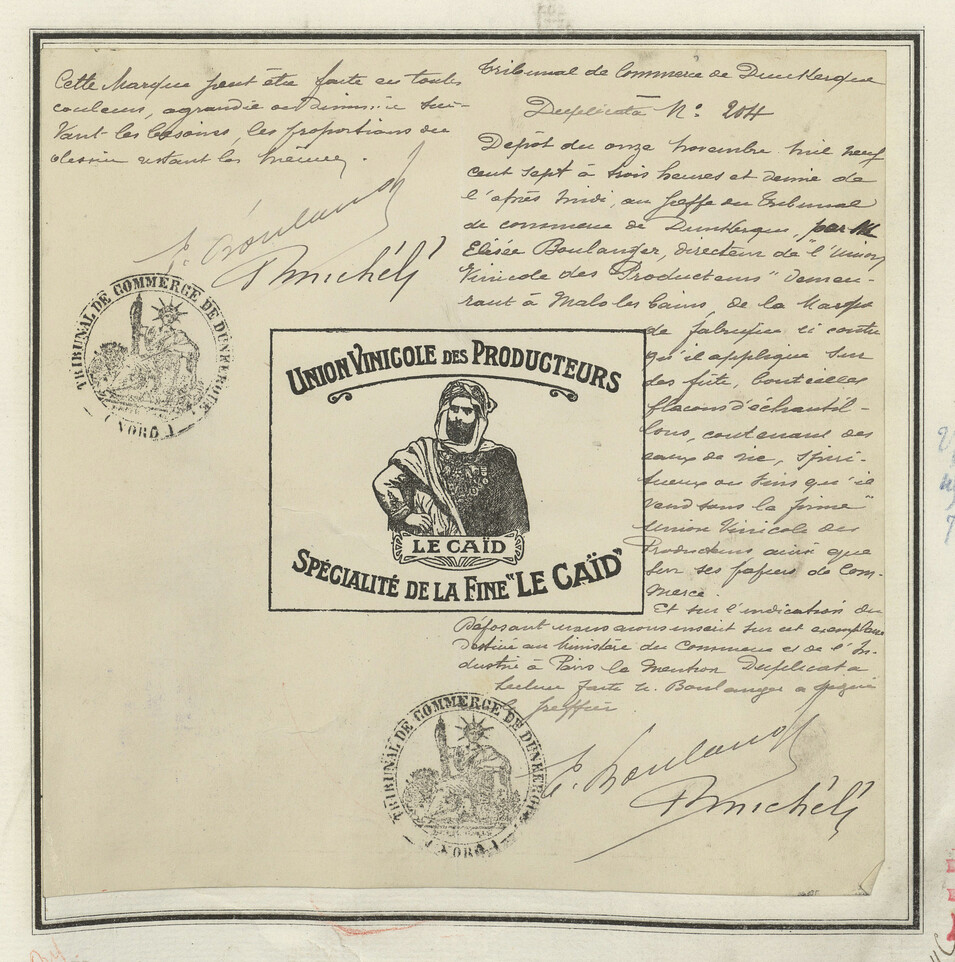 Cette Marque peut être faite en toutes
couleurs, agrandie ou diminuée sui-
vant les besoins, les proportions du
dessin restant les mêmes.
E. Boulanger
Michéli
TRIBUNAL DE COMMERCE DE DUNKERQUE
(NORD)
Tribunal de Commerce de Dunkerque
Duplicata N° 204
Dépôt du onze novembre mil neuf
cent sept à trois heures et demie de
l'après midi, au greffe du Tribunal
de commerce de Dunkerque, par M
Elisée Boulanger, directeur de "l'Union
Vinicole des Producteurs" demeu-
rant à Malo les bains, de la Marque
de fabrique ci contre
qu'il applique sur
des fûts, bouteilles
flacons d'échantil-
lons, contenant des
eaux de vie, spiri-
tueux ou vins qu'il
vend sous la firme "
Union Vinicole des
Producteurs ainsi que
sur ses papiers de Com-
merce.
Et sur l'indication du
Déposant nous avons inscrit sur cet exemplaire
destiné au Ministère du Commerce et de l'In-
dustrie à Paris la mention Duplicata
Lecture faite M. Boulanger a signé
greffier
UNION VINICOLE DES PRODUCTEURS
LE CAÏD
SPÉCIALITÉ DE LA FINE "LE CAÏD"
TRIBUNAL DE COMMERCE DE DUNKERQUE
(NORD)
E. Boulanger
Michéli